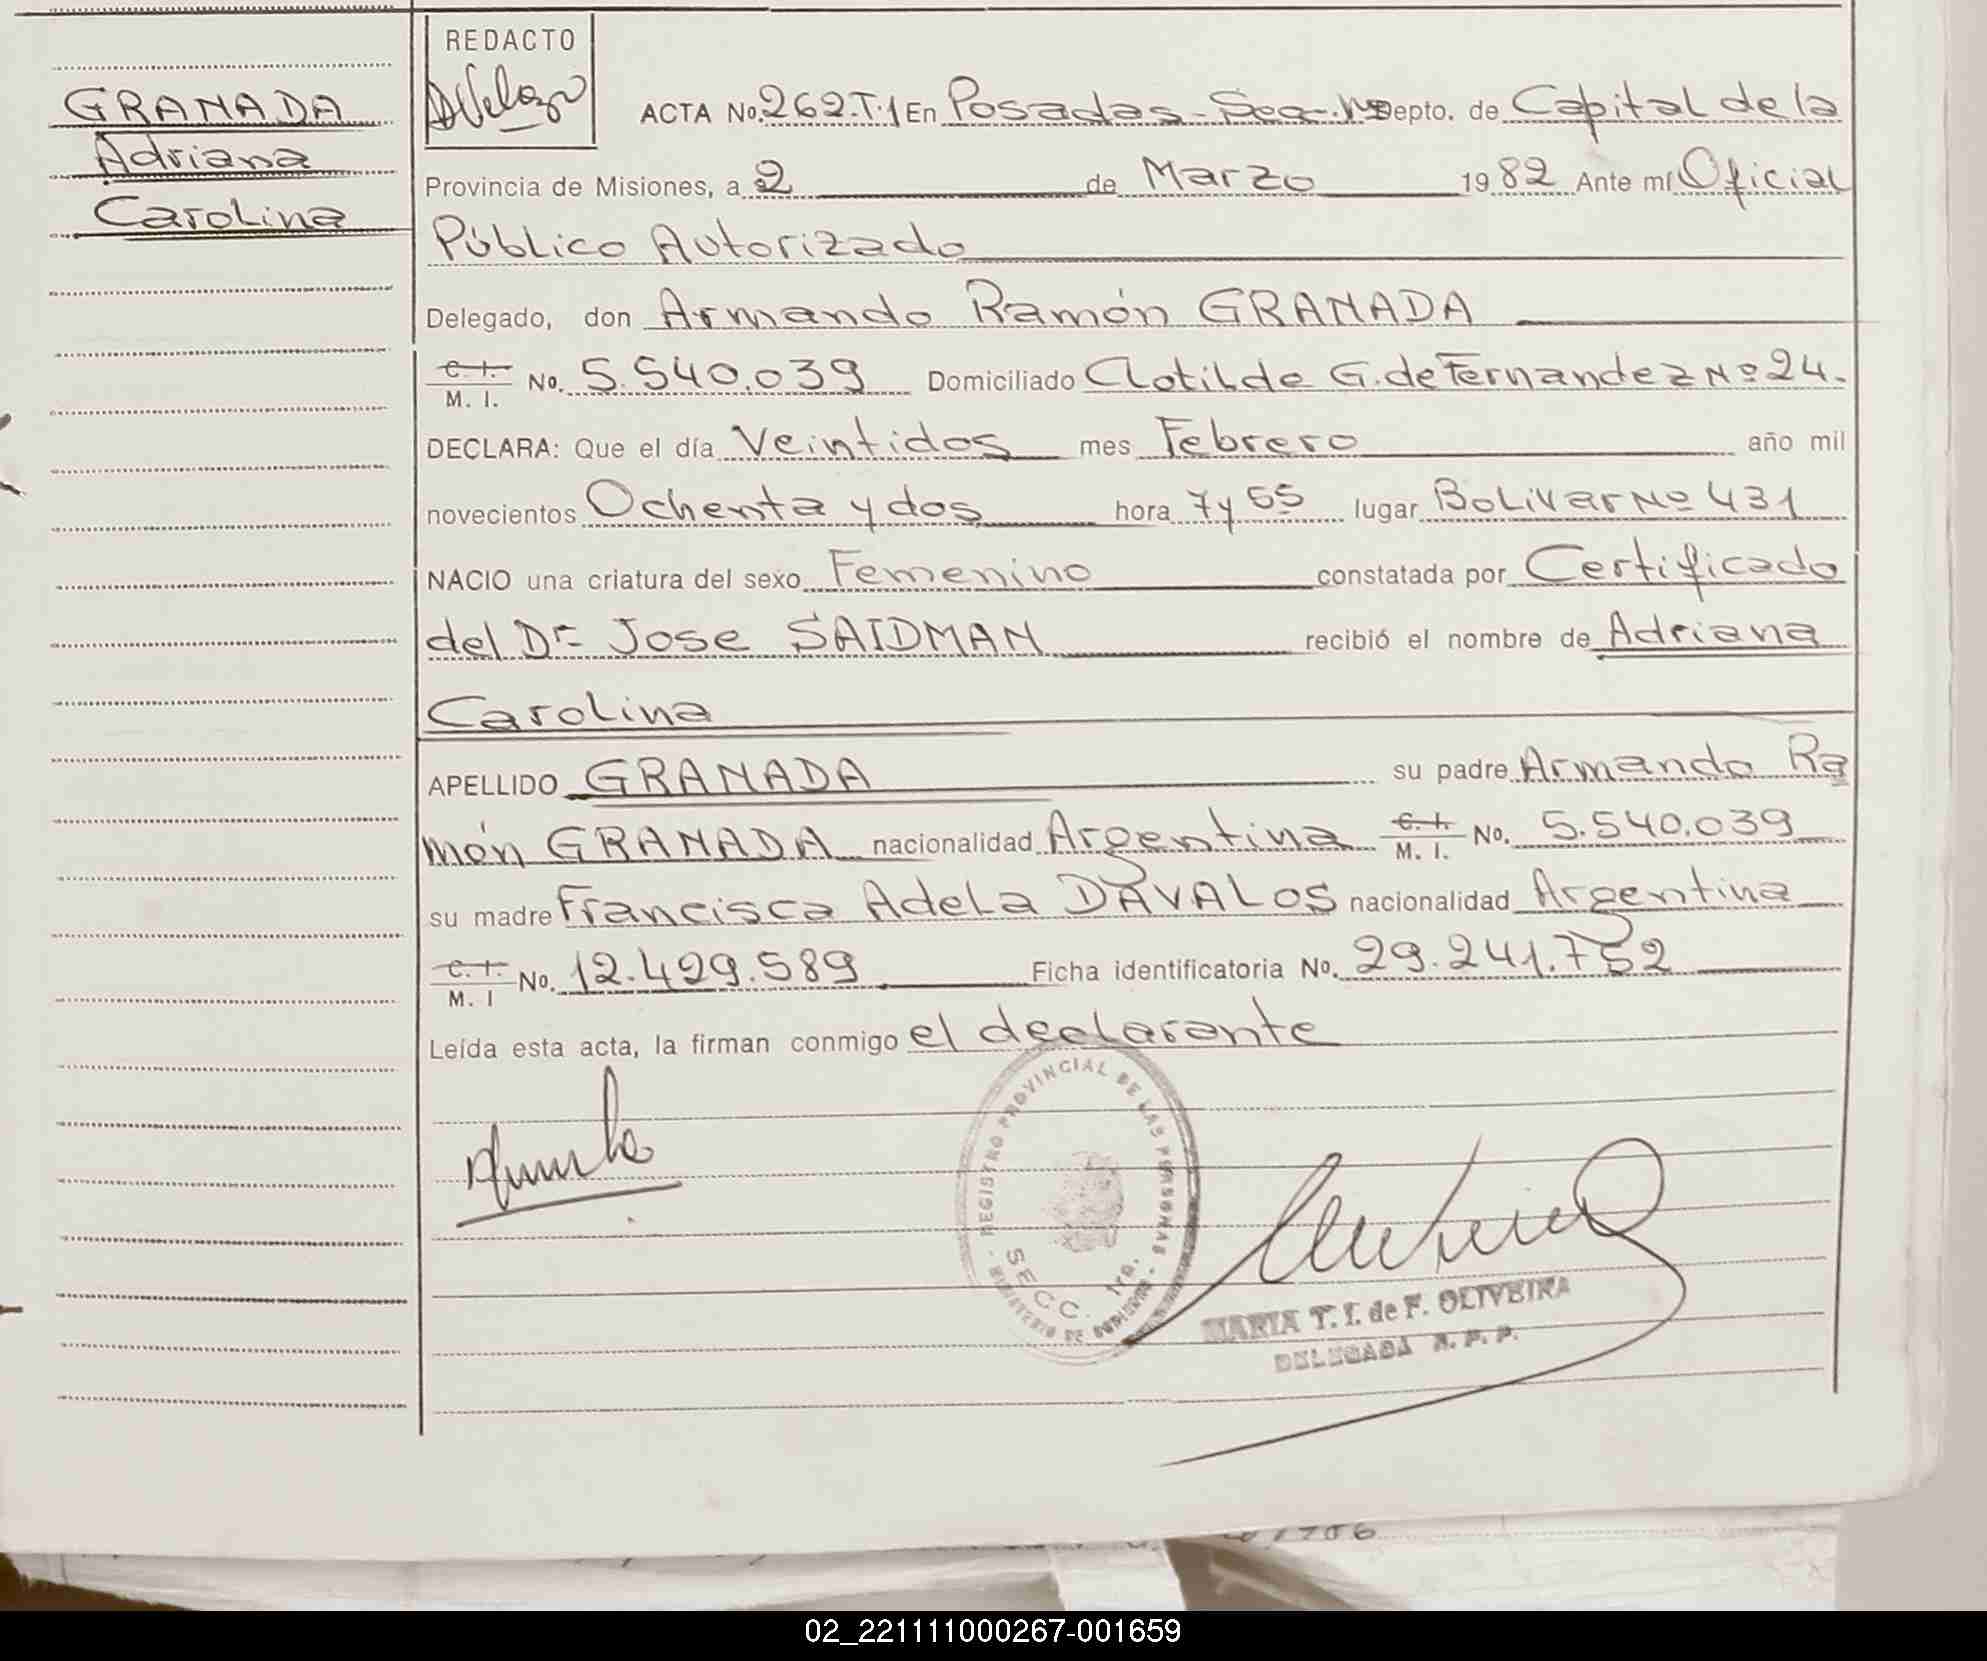 GRANADA
Adriana
Carolina
REDACTO
ACTA No. 262.T.1 En Posadas - Sec. 1ra Depto. de Capital de la
Provincia de Misiones, a 2 de Marzo 1982 Ante mí Oficial
Público Autorizado
Delegado, don Armando Ramón GRANADA
C. I. M. I. No. 5.540.039 Domiciliado Clotilde G. de Fernandez Nº 24.
DECLARA: Que el día Veintidos mes Febrero año mil
novecientos Ochenta y dos hora 7 y 55 lugar Bolivar Nº 431
NACIO una criatura del sexo Femenino constatada por Certificado
del Dr. Jose SAIDMAN recibió el nombre de Adriana
Carolina
APELLIDO GRANADA su padre Armando Ra
món GRANADA nacionalidad Argentina C. I. M. I. No. 5.540.039
su madre Francisca Adela DAVALOS nacionalidad Argentina
C. I. M. I No. 12.429.589 Ficha identificatoria No. 29.241.752
Leída esta acta, la firman conmigo el declarante
REGISTRO PROVINCIAL DE LAS PERSONAS
SECC. 1ra.
MINISTERIO DE GOBIERNO
MARIA T. I. de F. OLIVEIRA
DELEGADA R. P. P.
02_221111000267-001659